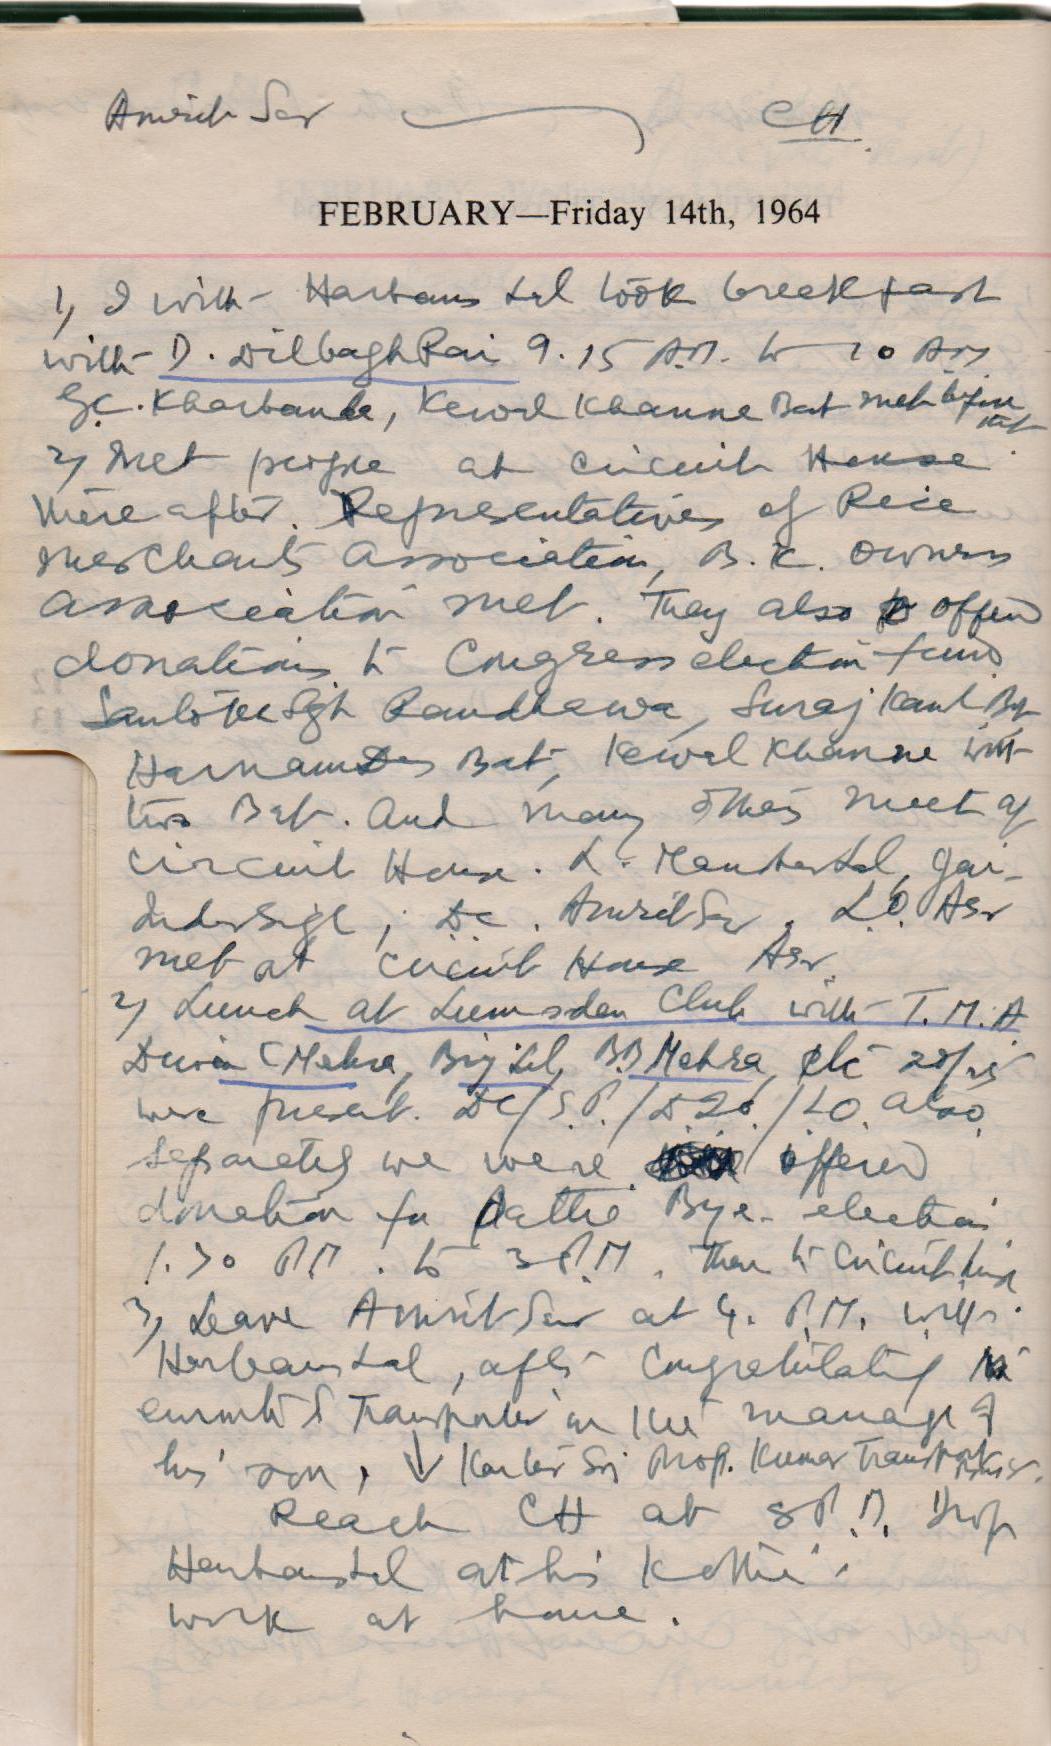 Amrit Sar CH
FEBRUARY—Friday 14th, 1964
1, I with Harbans Lal took breakfast
with D. Dilbagh Rai 9.15 A.M. to 10 AM
G.C. Kharbanda, Kewal Khanna Bat met before that
2, Met people at circuit House
thereafter. Representatives of Rice
Merchants association, B.K. owners
association met. They also offered
donations to Congress election fund
Sgh Randhawa, Suraj Kant
Harnam Das Bat, Kewal Khanna with
two Bat. And many others meet at
circuit House. L. Manoharlal, Jai-
Inder Sigh, DC. AmritSar. L.O. Asr
met at circuit House Asr.
2, Lunch at Lumsden Club with T.M.A
C Mehra, Brij Lal, BB Mehra, etc 20/25
were present. DC/S.P./ /LO. also.
separately we were offered
donation for Bye-election
1.30 P.M. to 3 P.M. Then to circuit
3, Leave Amrit Sar at 4. P.M. with
Harbans Lal, after Congratulating
Transporter on the marriage of
his son, ↓ Prop. Kumar Transport
Reach CH at 8 P.M. Drop
Harbans Lal at his Kothi.
work at home.